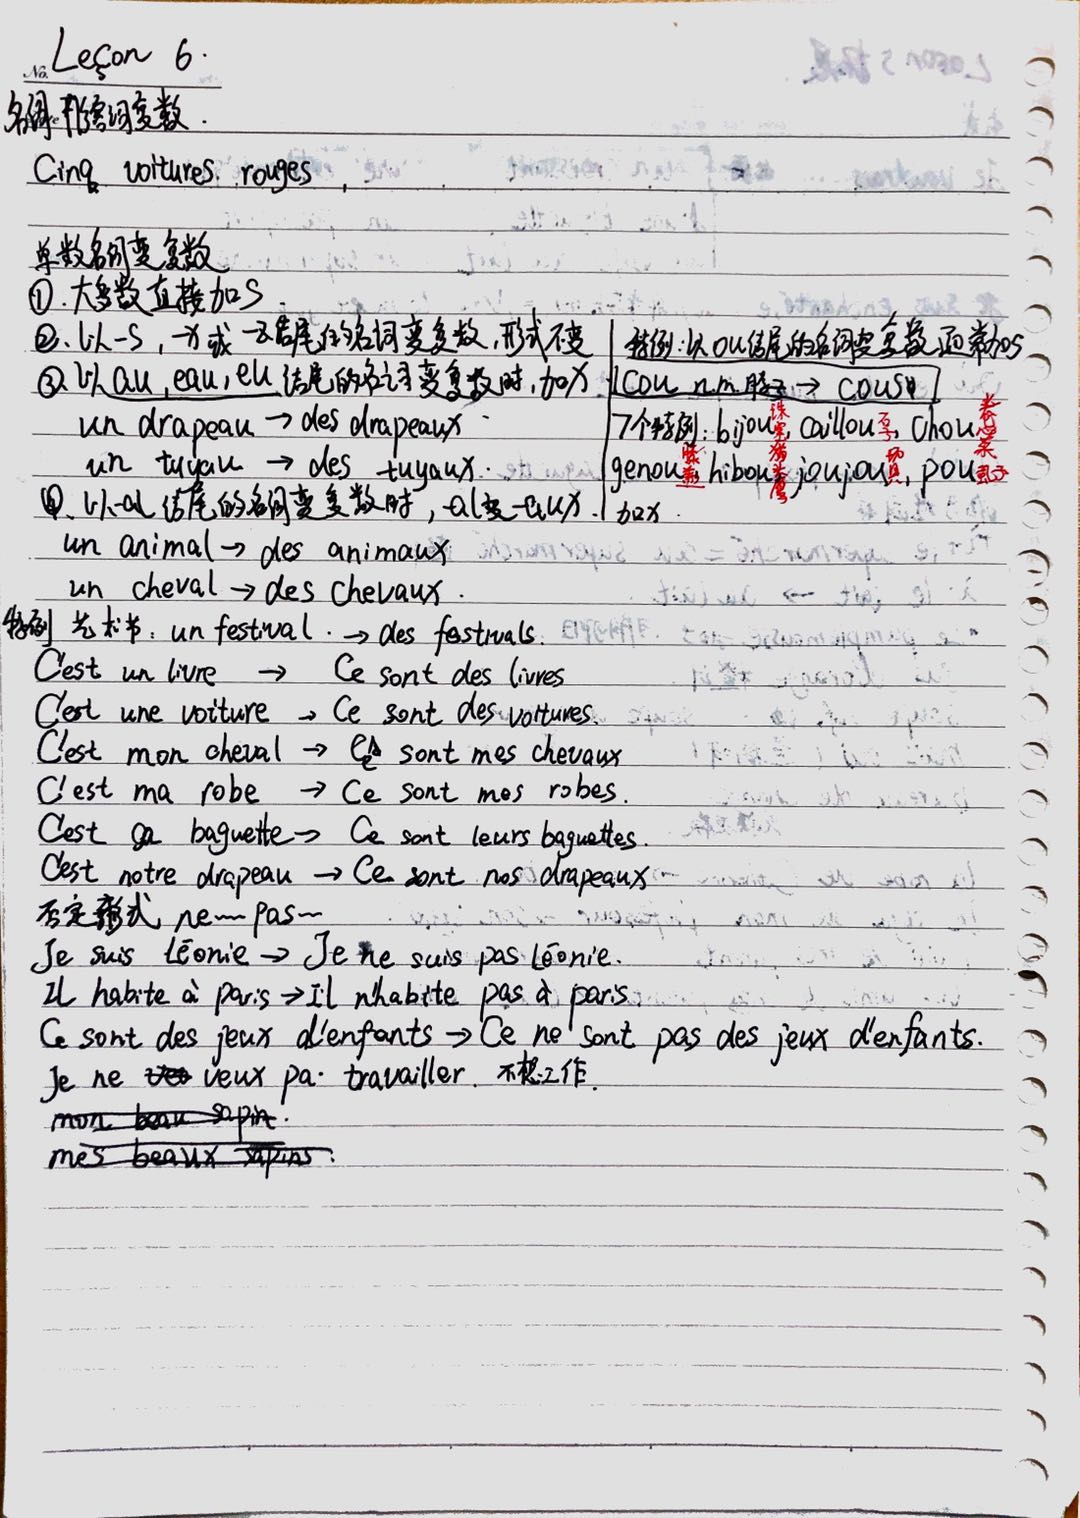 Leçon 6.
No.
名词 形容词变数.
Cinq voitures rouges
单数名词变复数
①.大多数直接加s.
②.以-s,-x或-z结尾的名词变复数,形式不变
③.以au,eau,eu结尾的名词变复数时,加x
un drapeau → des drapeaux
un tuyau → des tuyaux.
④.以-al结尾的名词变复数时,-al变-aux.
特例:以ou结尾的名词变复数通常加s
cou n.m 脖子 → cous
7个特例: bijou珠宝, caillou石子, chou卷心菜
genou膝盖 hibou猫头鹰 joujou玩具, pou虱子
加x.
un animal → des animaux
un cheval → des chevaux.
特例 艺术节: un festival. → des festivals.
C'est un livre → Ce sont des livres
C'est une voiture → Ce sont des voitures.
C'est mon cheval → Ce sont mes chevaux
C'est ma robe → Ce sont mes robes.
C'est sa baguette → Ce sont leurs baguettes.
C'est notre drapeau → Ce sont nos drapeaux
否定形式 ne~~pas~
Je suis Léonie → Je ne suis pas Léonie.
Il habite à paris → Il n'habite pas à paris
Ce sont des jeux d'enfants → Ce ne sont pas des jeux d'enfants.
Je ne veux pa. travailler. 不想工作.
mon beau sapin.
mes beaux sapins.